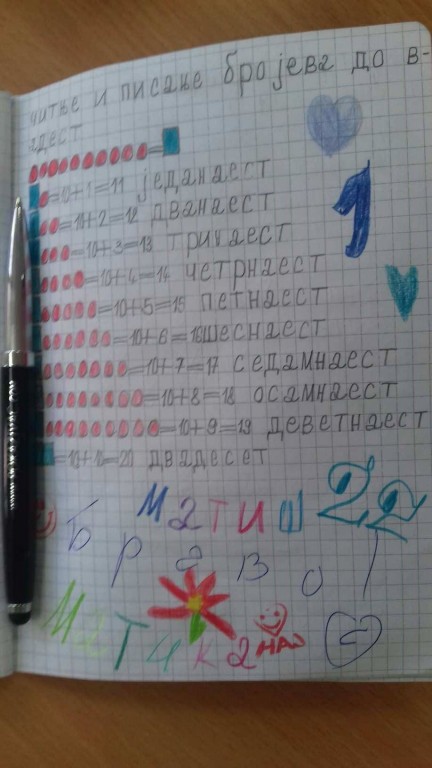 читње и писање бројева до в-
адест
=
=10+1=11 једанаест
=10+2=12 дванаест
=10+3=13 тринаест
=10+4=14 четрнаест
=10+5=15 петнаест
=10+6=16 шеснаест
=10+7=17 седамнаест
=10+8=18 осамнаест
=10+9=19 деветнаест
=10+10=20 двадесет
1
Матиш
Браво!
Матика